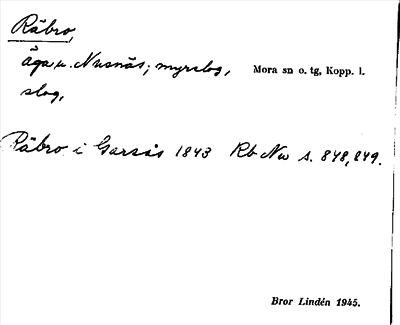 Räbro,
äga u. Nusnäs; myrslog, Mora sn o. tg, Kopp. l.
slog,
Räbro i Garsås 1843 Rb Nu s. 848, 849.
Bror Lindén 1945.